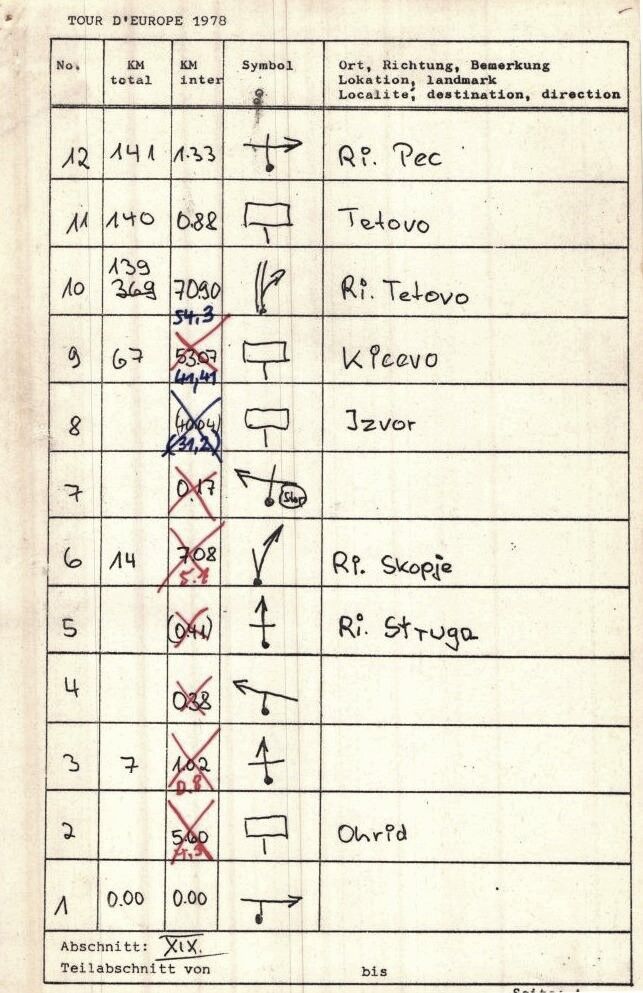 TOUR D'EUROPE 1978
No. KM total KM inter Symbol Ort, Richtung, Bemerkung
Lokation, landmark
Localité, destination, direction
12 141 1.33 Ri. Pec
11 140 0.88 Tetovo
139
10 369 70.90 Ri. Tetovo
54,3
9 67 53.07 Kicevo
41,41
8 Izvor
(31,2)
7 0.17 Stop
6 14 7.08 Ri. Skopje
5.1
5 (0.41) Ri. Struga
4 0.38
3 7 1.02
0.8
2 5.60 Ohrid
4,3
1 0.00 0.00
Abschnitt: XIX.
Teilabschnitt von bis